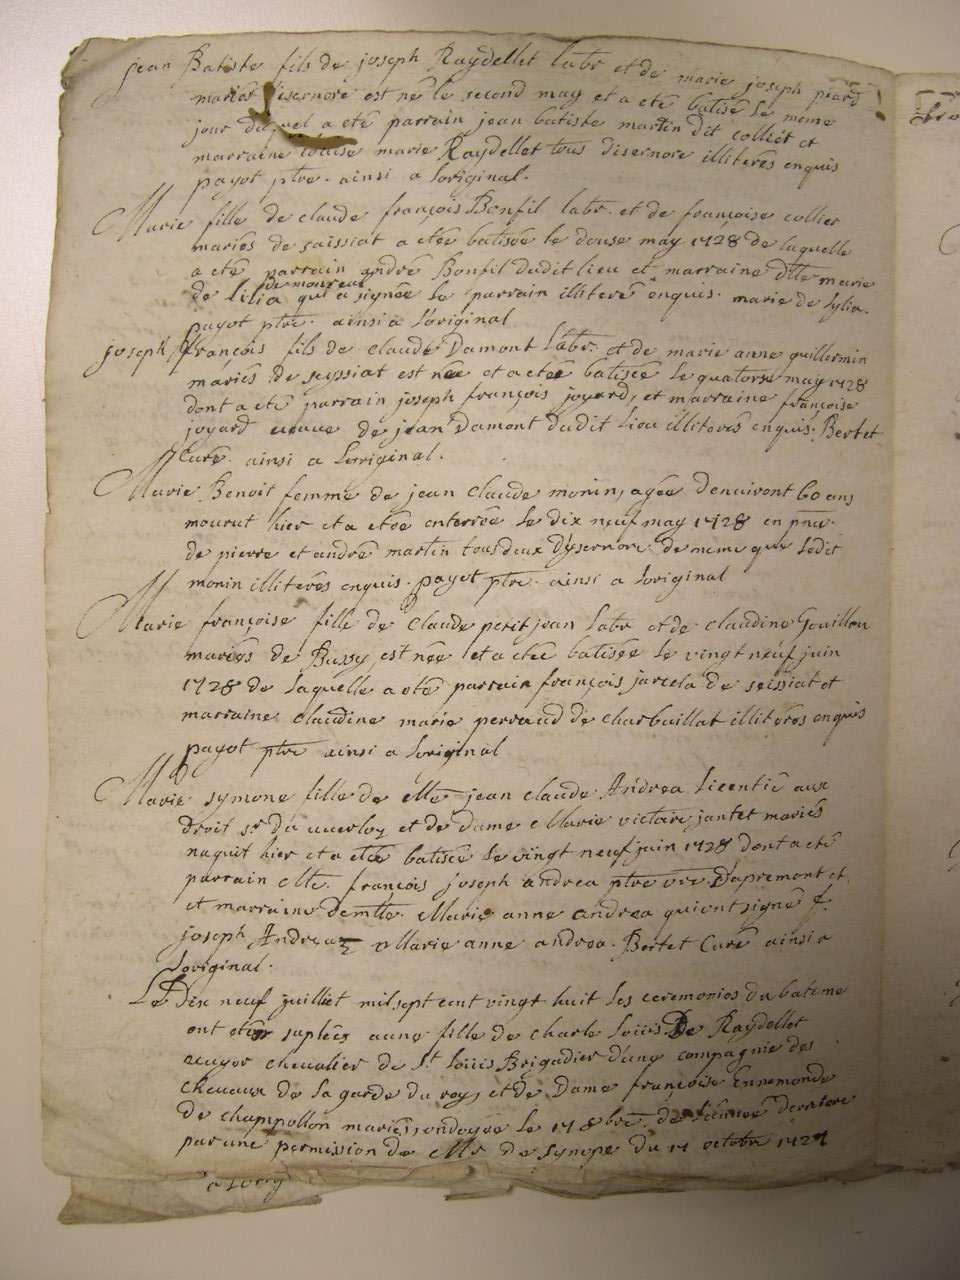 jean Batiste fils de joseph Raydellet labr et de marie joseph piard
mariés disernore est né le second may et a eté batisé le meme
jour duquel a eté parrain jean batiste martin dit colliet et
marraine louise marie Raydellet tous disernore illiterés enquis
payot ptre. ainsi a loriginal.
Marie fille de claude françois Bonfil labr. et de françoise collier
mariés de saissiat a etée batisée le douse may 1728 de laquelle
a eté parrain andré Bonfil dudit lieu et marraine dlle marie
demoureux
de lilia qui a signée le parrain illiteré enquis. marie de lylia.
payot ptre. ainsi a loriginal
joseph françois fils de claude Damont labr. et de marie anne guillermin
mariés de seyssiat est née et a etée batisée le quatorse may 1728
dont a eté parrain joseph françois joyard, et marraine françoise
joyard veuve de jean Damont dudit lieu illiterés enquis. Bertet
Curé. ainsi a loriginal.
Marie Benoit femme de jean claude monin, agée denviront 60 ans
mourut hier et a etée enterrée le dix neuf may 1728 en pnce.
de pierre et andré martin tous deux dysernore de meme que ledit
monin illiterés enquis. payot ptre. ainsi a loriginal
Marie françoise fille de Claude petit jean labr et de claudine Gouillon
mariés de Bussy est née et a eteé batisée le vingt neuf juin
1728 de laquelle a eté parrain françois jarcela de seissiat et
marraine claudine marie perraud de charbuillat illiterés enquis
payot ptre ainsi a loriginal
Marie symone fille de Mre jean claude Andrea licentié aux
droit sr. du uuerloy et de Dame Marie victoire jantet mariés
naquit hier et a eteé batisée le vingt neuf juin 1728 dont a eté
parrain Mre. françois joseph andrea ptre vre D'apremont et
et marraine demlle. Marie anne andrea qui ont signé f.
joseph Andrea Marie anne andrea. Bertet Curé ainsi a
loriginal.
Le Dix neuf juilliet mil sept cent vingt huit les ceremonies du bateme
ont eté suplées a une fille de charle loüis De Raydellet
ecuyer chevalier de St. loüis Brigadier d'une compagnie des
chevaux de la garde du roy, et de Dame françoise Ennemonde
de champollon mariés, ondoyée le 17 8bre. de l'année derniere
par une permission de Mr de synope du 11 octobre 1727